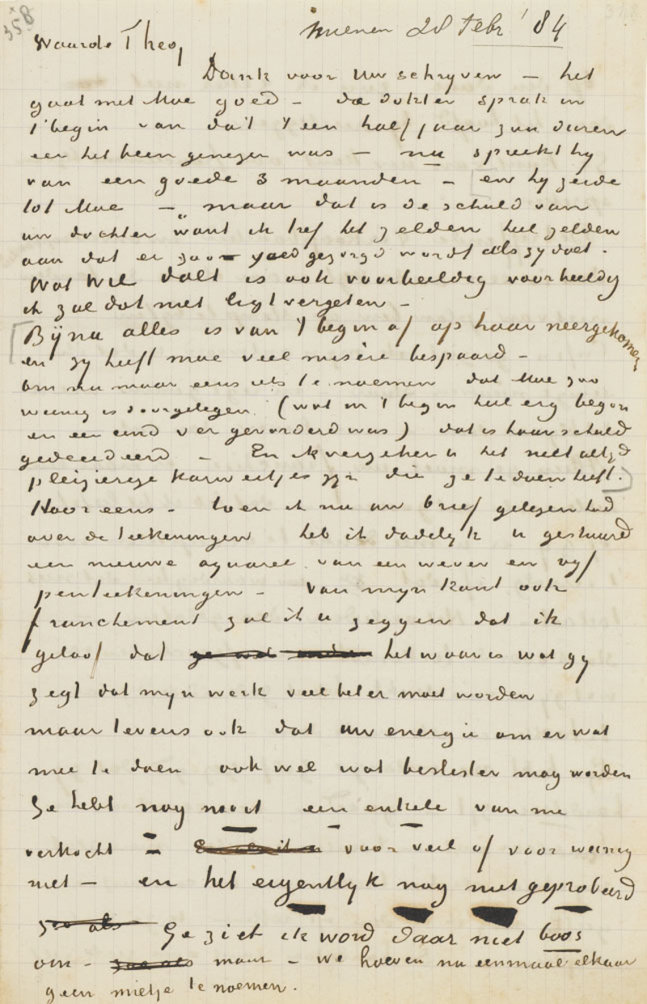 358
Nuenen 28 Febr '84
Waarde Theo,
Dank voor uw schryven – het
gaat met Moe goed – de dokter sprak in
't begin van dat 't een half jaar zou duren
eer het been genezen was – nu spreekt hy
van een goede 3 maanden – en hy zeide
tot Moe – „maar dat is de schuld van
uw dochter want ik tref het zelden heel zelden
aan dat er zoo goed gezorgd wordt als zy doet.
Wat Wil doet is ook voorbeeldig voorbeeldig
ik zal dat niet ligt vergeten –
Bijna alles is van 't begin af op haar neergekomen
en zy heeft moe veel misère bespaard –
om nu maar eens iets te noemen dat Moe zoo
weinig is doorgelegen (wat in 't begin heel erg begon
en een eind ver gevorderd was) dat is haar schuld
gedecideerd – En ik verzeker u het niet altyd
pleizierige karweitjes zyn die ze te doen heeft.
Hoor eens – toen ik nu uw brief gelezen had
over de teekeningen heb ik dadelyk u gestuurd
een nieuwe aquarel van een wever en vyf
penteekeningen – Van myn kant ook
franchement zal ik u zeggen dat ik
geloof dat het waar is wat gy
zegt dat myn werk veel beter moet worden
maar tevens ook dat uw energie om er wat
mee te doen ook wel wat beslister mag worden
Ge hebt nog nooit een enkele van me
verkocht – voor veel of voor weinig
niet – en het eigentlyk nog niet geprobeerd
zoo als Ge ziet ik word daar niet boos
om – maar – we hoeven nu eenmaal elkaar
geen mietje te noemen.